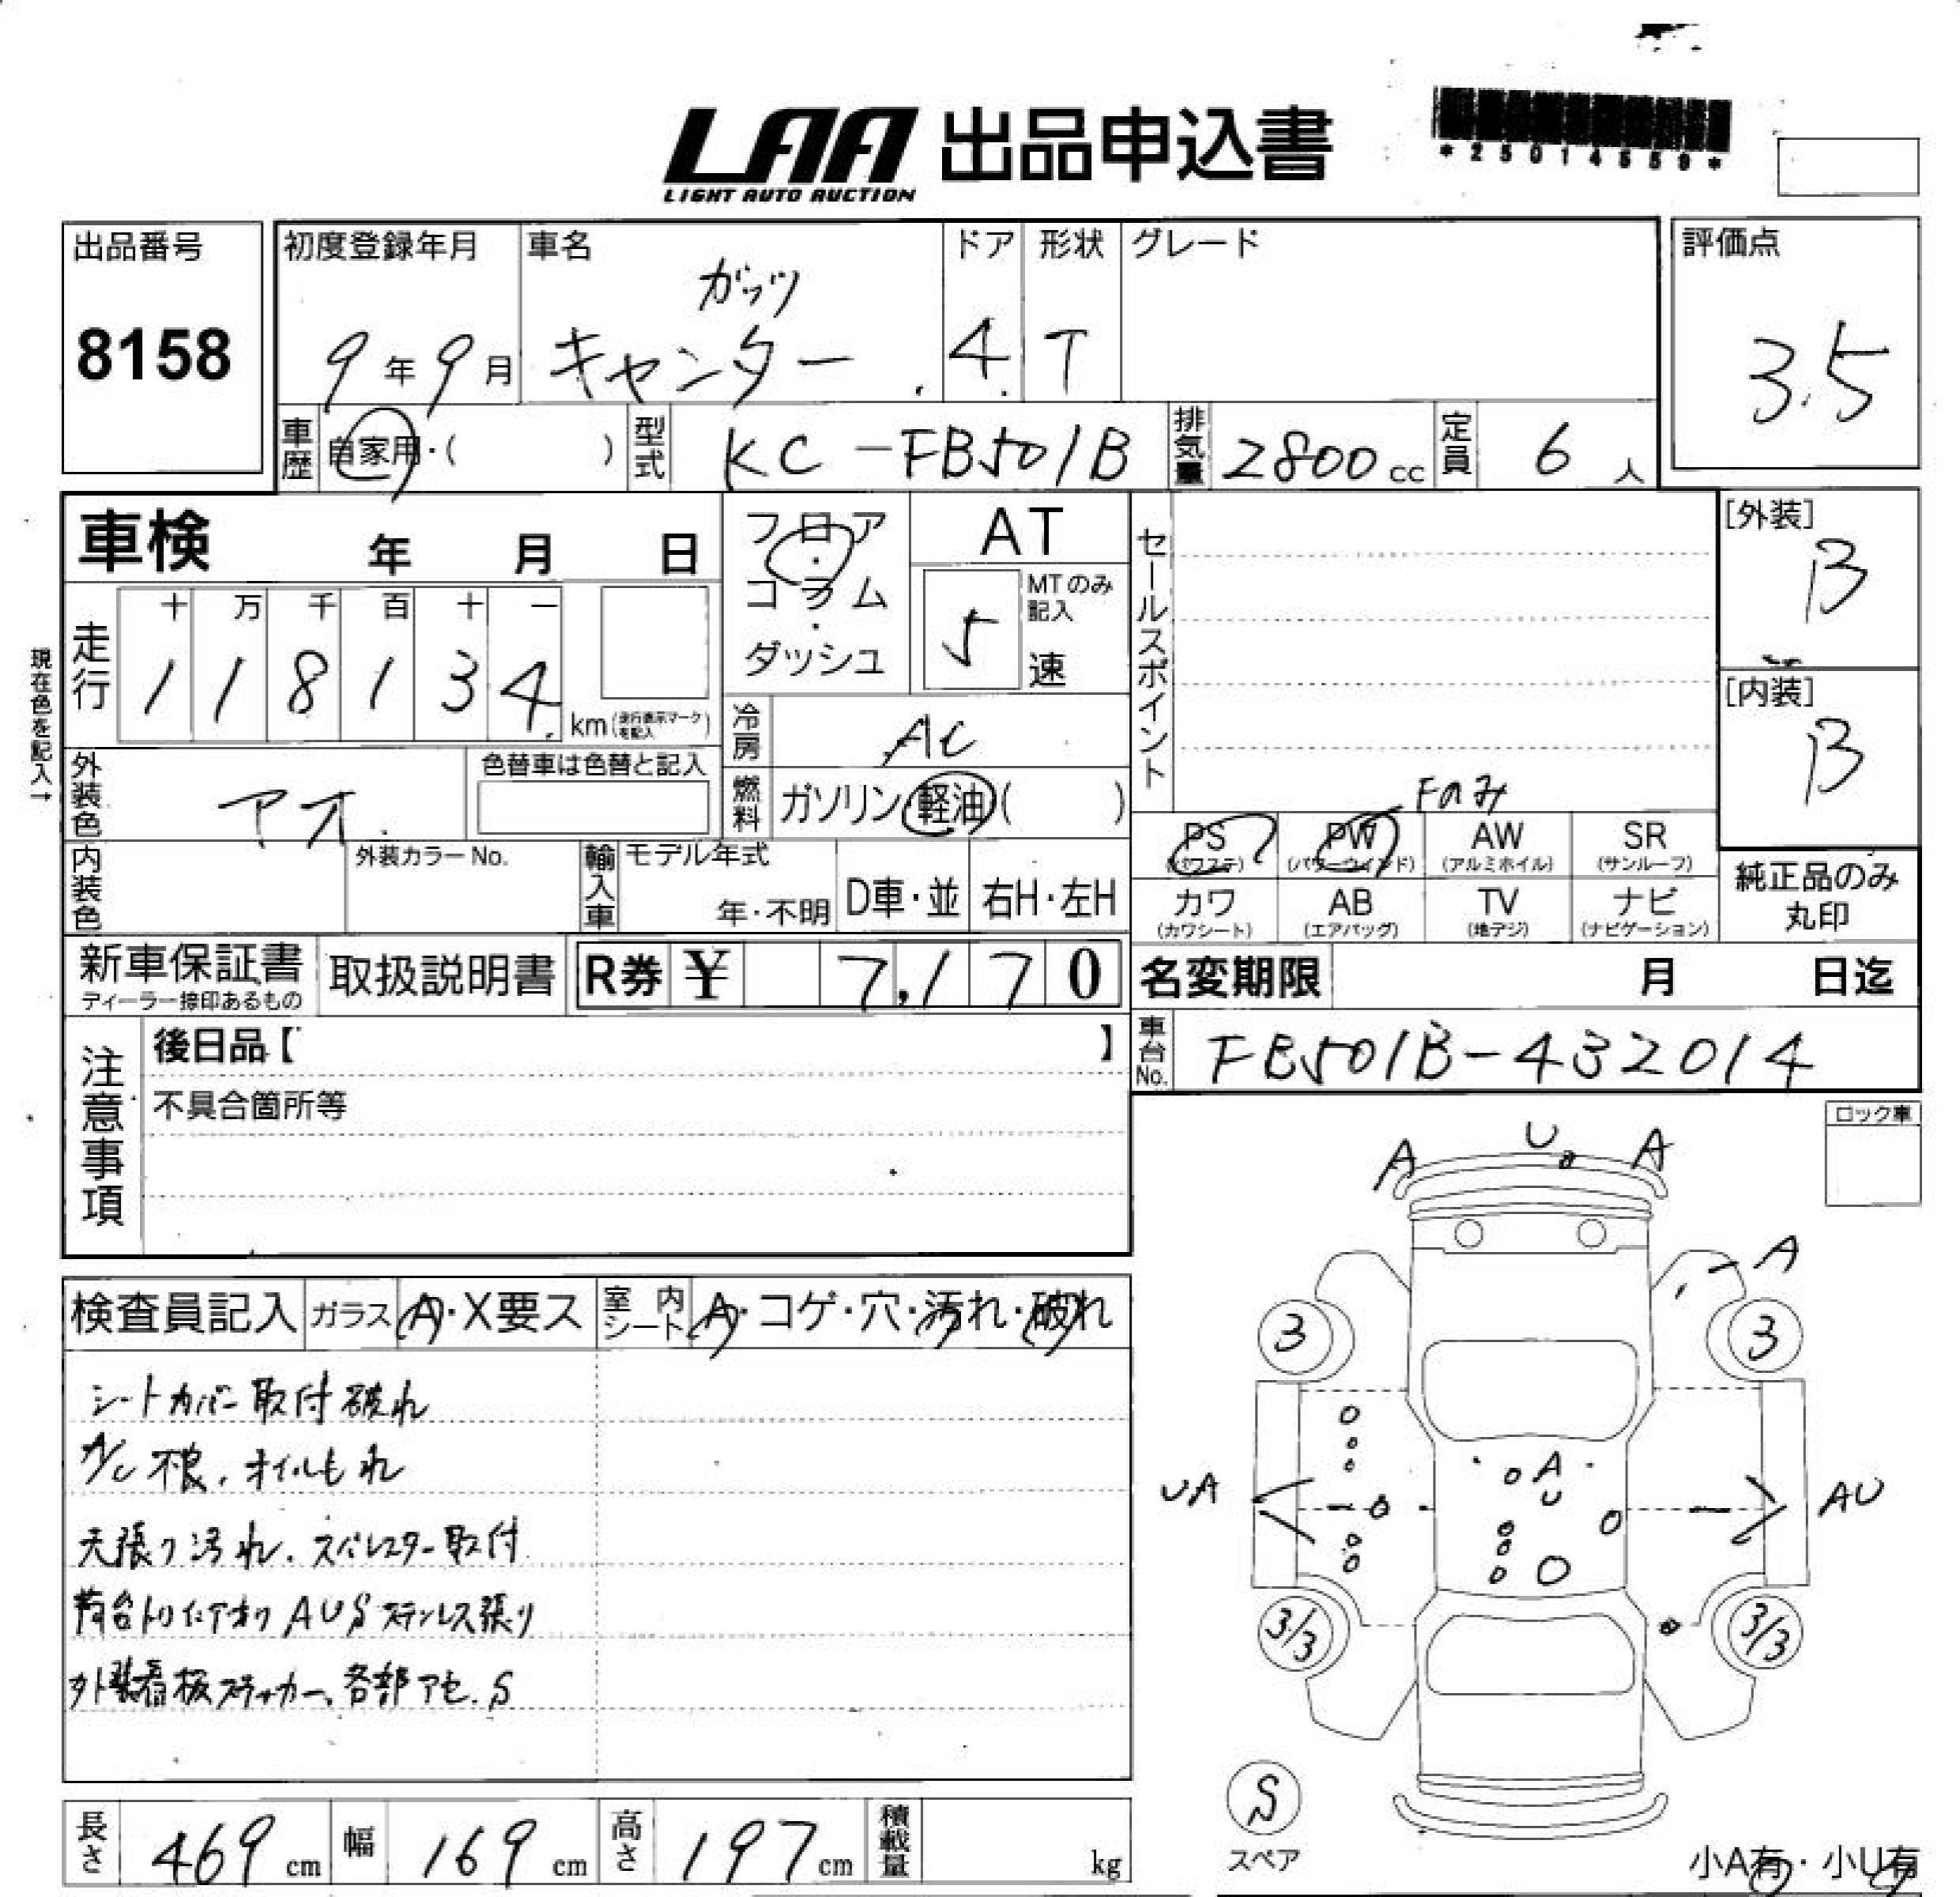 LAA 出品申込書
LIGHT AUTO AUCTION
*25014559*
出品番号
8158
初度登録年月
9年9月
車名
ガッツ
キャンター
ドア
4
形状
T
グレード
評価点
3.5
車歴
自家用・( )
型式
KC-FB501B
排気量
2800cc
定員
6人
車検 年 月 日
フロア・コラム・ダッシュ
AT
MTのみ記入
5速
セールスポイント
[外装]
B
[内装]
B
現在色を記入→
走行
十万千百十一
118134
km(走行表示マークを記入)
冷房
AC
外装色
アオ
色替車は色替と記入
燃料
ガソリン・軽油( )
Fのみ
PS (パワステ) PW (パワーウインド) AW (アルミホイル) SR (サンルーフ)
カワ (カワシート) AB (エアバッグ) TV (地デジ) ナビ (ナビゲーション)
純正品のみ丸印
内装色
外装カラーNo.
輸入車
モデル年式
年・不明
D車・並
右H・左H
新車保証書
ディーラー捺印あるもの
取扱説明書
R券 ¥ 7,170
名変期限 月 日迄
車台No.
FB501B-432014
注意事項
後日品【 】
不具合箇所等
ロック車
U A A
A
3 3
UA
A
U
AU
3/3 3/3
検査員記入 ガラス A・X要ス 室内シート A・コゲ・穴・汚れ・破れ
シートカバー取付破れ
A/C不良、オイルもれ
天張り汚れ、スパレスター取付
荷台トリイアオリAUSステンレス張り
外装看板ステッカー、各部アセ、S
S
スペア
小A有・小U有
長さ 469cm 幅 169cm 高さ 197cm 積載量 kg